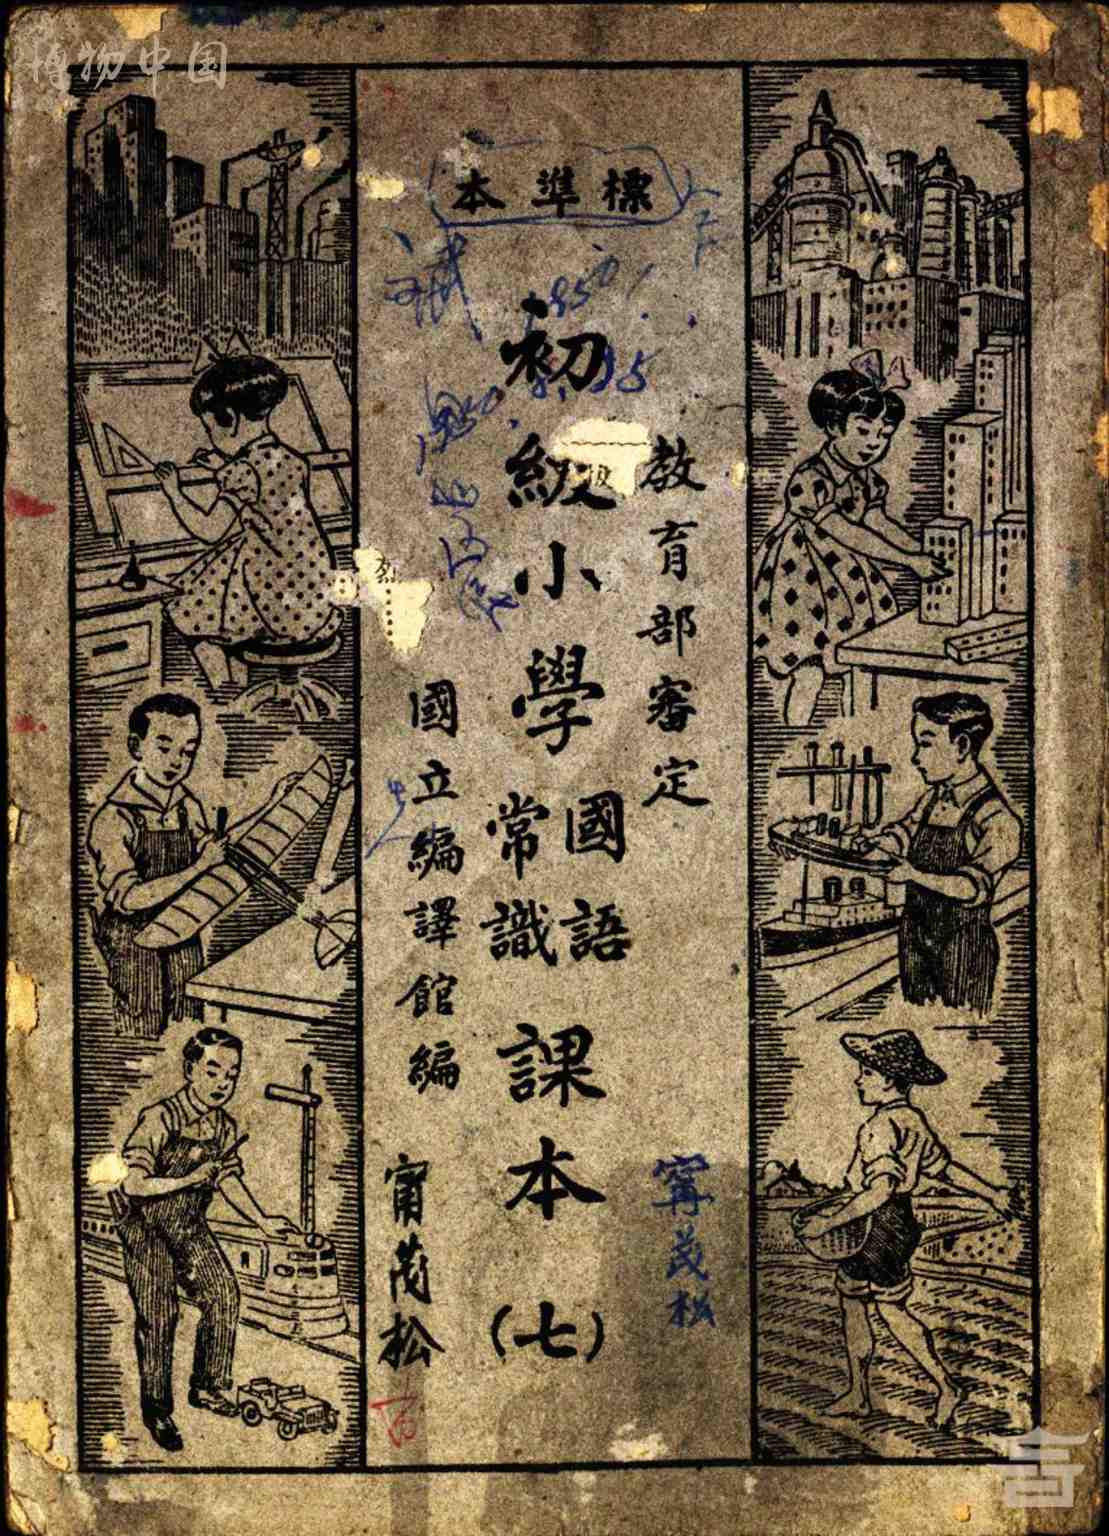 博物中国
本準標
教育部審定
初級小學
國語
常識
課本
（七）
國立編譯館編
甯茂松
寗茂松